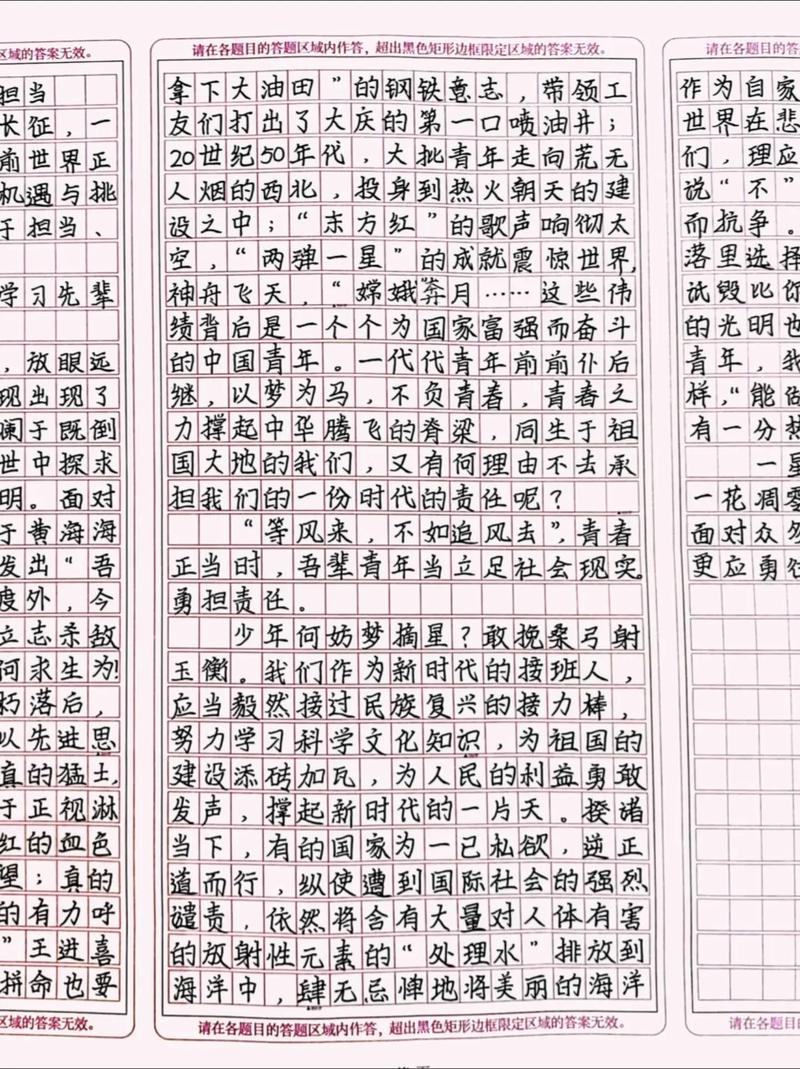 区域的答案无效。
担当
长征，一
前世界正
机遇与挑
于担当、
学习先辈
，放眼远
现出现了
澜于既倒
世中探求
明。面对
于黄海海
发出“吾
度外，今
立志杀敌
何求生为!
朽落后，
以先进思
真的猛士,
于正视淋
红的血色
望；真的
的有力呼
”王进喜
拼命也要
区域的答案无效。
请在各题目的答题区域内作答，超出黑色矩形边框限定区域的答案无效。
拿下大油田”的钢铁意志，带领工
友们打出了大庆的第一口喷油井；
20世纪50年代，大批青年走向荒无
人烟的西北，投身到热火朝天的建
设之中；“东方红”的歌声响彻太
空，“两弹一星”的成就震惊世界,
神舟飞天，“嫦娥奔月……这些伟
绩背后是一个个为国家富强而奋斗
的中国青年。一代代青年前前仆后
继，以梦为马，不负青春，青春之
力撑起中华腾飞的脊梁，同生于祖
国大地的我们，又有何理由不去承
担我们的一份时代的责任呢？
“等风来，不如追风去”,青春
正当时，吾辈青年当立足社会现实。
勇担责任。
少年何妨梦摘星？敢挽桑弓射
玉衡。我们作为新时代的接班人，
应当毅然接过民族复兴的接力棒，
努力学习科学文化知识，为祖国的
建设添砖加瓦，为人民的利益勇敢
发声，撑起新时代的一片天。揆诸
当下，有的国家为一已私欲，逆正
道而行，纵使遭到国际社会的强烈
谴责，依然将含有大量对人体有害
的放射性元素的“处理水”排放到
海洋中，肆无忌惮地将美丽的海洋
请在各题目的答题区域内作答，超出黑色矩形边框限定区域的答案无效。
请在各题目的
作为自家
世界在悲
们，理应
说“不”
而抗争。
落里选择
诋毁比你
的光明也
青年，我
样，“能做
有一分热
一星
一花凋零
面对众
更应勇
请在各题目的